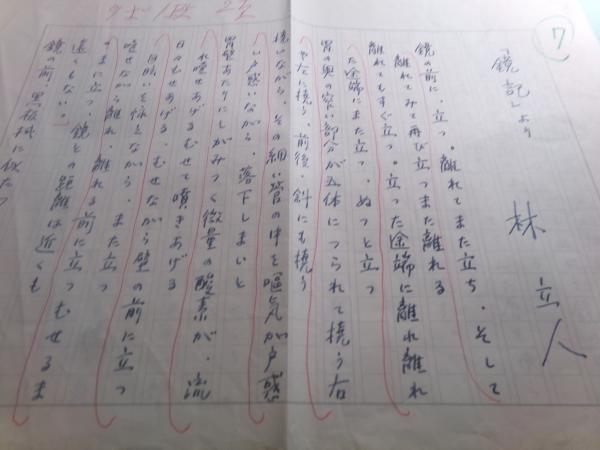 9ポ1段 2
7
「鏡記」より
林 立人
鏡の前に、立つ。離れてまた立ち、そして
離れてみて再び立つまた離れる
離れてもすぐ立つ。立った途端に離れ離れ
た途端にまた立つ、ぬっと立つ
胃の奥の窄い部分が五体につられて撓う右
や左に撓う、前後、斜にも撓う
撓いながら、その細い管の中を嘔気が戸惑
い戸惑いながら、落下しまいと
胃壁あたりにしがみつく微量の酸素が、流
れ噎せあげるむせて噴きあげる
日々むせあげる、むせながら壁の前に立つ
目眩いを
噎せながら離れ、離れる前に立つむせるま
ままに立つ、鏡との距離は近くも
遠くもない。
鏡の前、黒板拭に似た